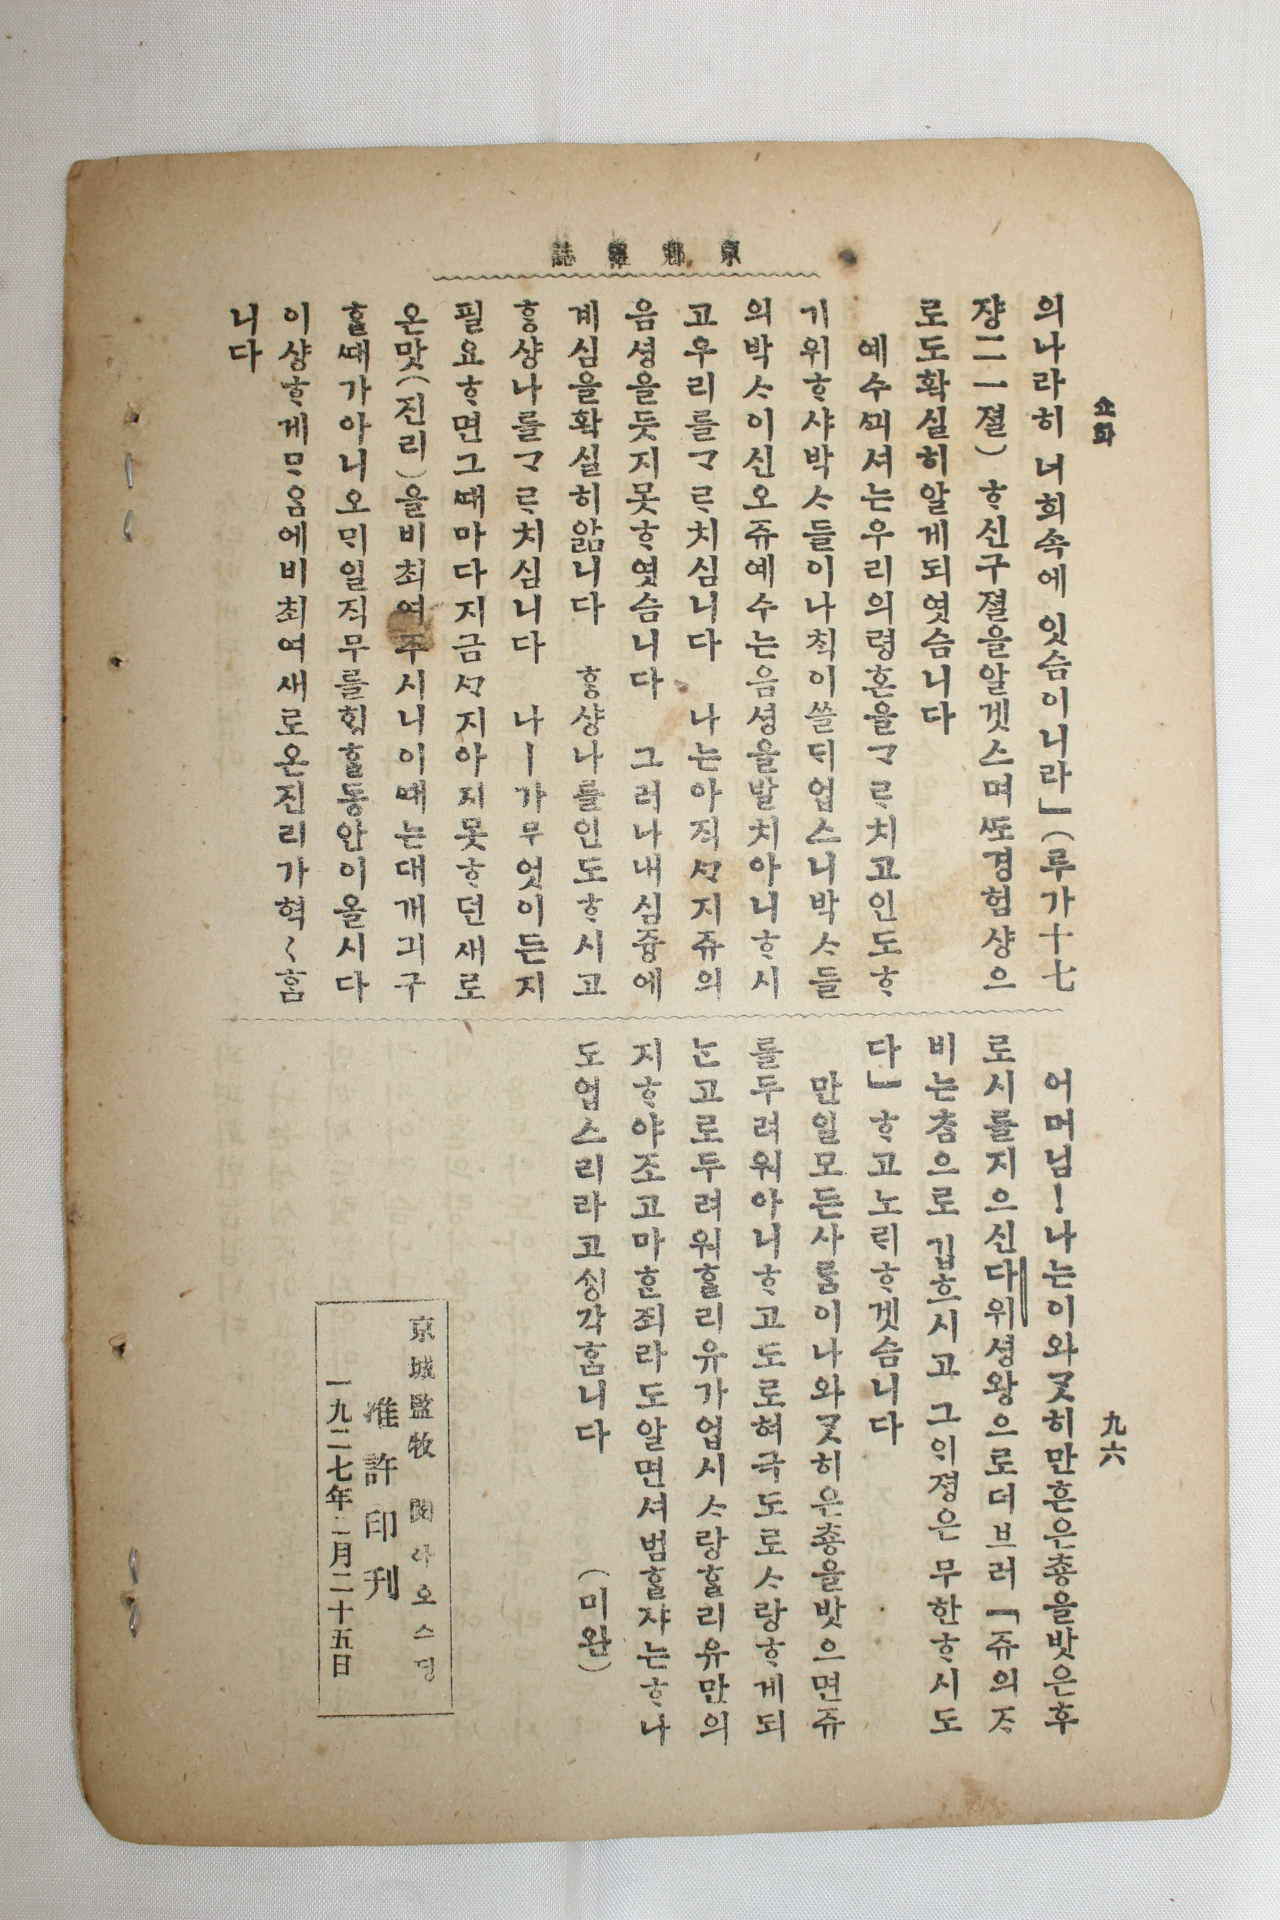 京鄕雜誌
쇼화
九六
의나라히 너희속에 잇슴이니라」(루가十七
쟝二一졀) ᄒᆞ신구졀을알겟스며ᄯᅩ경험샹으
로도확실히알게되엿슴니다
예수ᄭᅴ셔는우리의령혼을ᄀᆞᄅᆞ치고인도ᄒᆞ
기위ᄒᆞ샤박ᄉᆞ들이나ᄎᆡᆨ이쓸ᄃᆡ업스니박ᄉᆞ들
의박ᄉᆞ이신오쥬예수는음셩을발치아니ᄒᆞ시
고우리를ᄀᆞᄅᆞ치심니다 나는아직ᄭᆞ지쥬의
음셩을듯지못ᄒᆞ엿슴니다 그러나내심즁에
계심을확실히앎니다 ᄒᆞᆼ샹나를인도ᄒᆞ시고
ᄒᆞᆼ샹나를ᄀᆞᄅᆞ치심니다 나ㅣ가무엇이든지
필요ᄒᆞ면그ᄯᅢ마다지금ᄭᆞ지아지못ᄒᆞ던새로
온맛(진리)을비최여주시니이ᄯᅢ는대개긔구
ᄒᆞᆯᄯᅢ가아니오ᄆᆡ일직무를ᄒᆡᆼᄒᆞᆯ동안이올시다
이샹ᄒᆞ게ᄆᆞ음에비최여새로온진리가혁〱ᄒᆞᆷ
니다
어머님!나는이와ᄀᆞᆺ히만흔은춍을밧은후
로시를지으신다위셩왕으로더브러「쥬의ᄌᆞ
비는ᄎᆞᆷ으로 깁흐시고 그ᄋᆡ졍은 무한ᄒᆞ시도
다」ᄒᆞ고노ᄅᆡᄒᆞ겟슴니다
만일모든사ᄅᆞᆷ이나와ᄀᆞᆺ히은춍을밧으면쥬
를두려워아니ᄒᆞ고도로혀극도로ᄉᆞ랑ᄒᆞ게되
ᄂᆞᆫ고로두려워ᄒᆞᆯ리유가업시ᄉᆞ랑ᄒᆞᆯ리유만의
지ᄒᆞ야조고마ᄒᆞᆫ죄라도알면셔범ᄒᆞᆯ쟈는ᄒᆞ나
도업스리라고ᄉᆡᆼ각ᄒᆞᆷ니다 (미완)
京城監牧 閔아오스딩
准許印刋
一九二七年二月二十五日